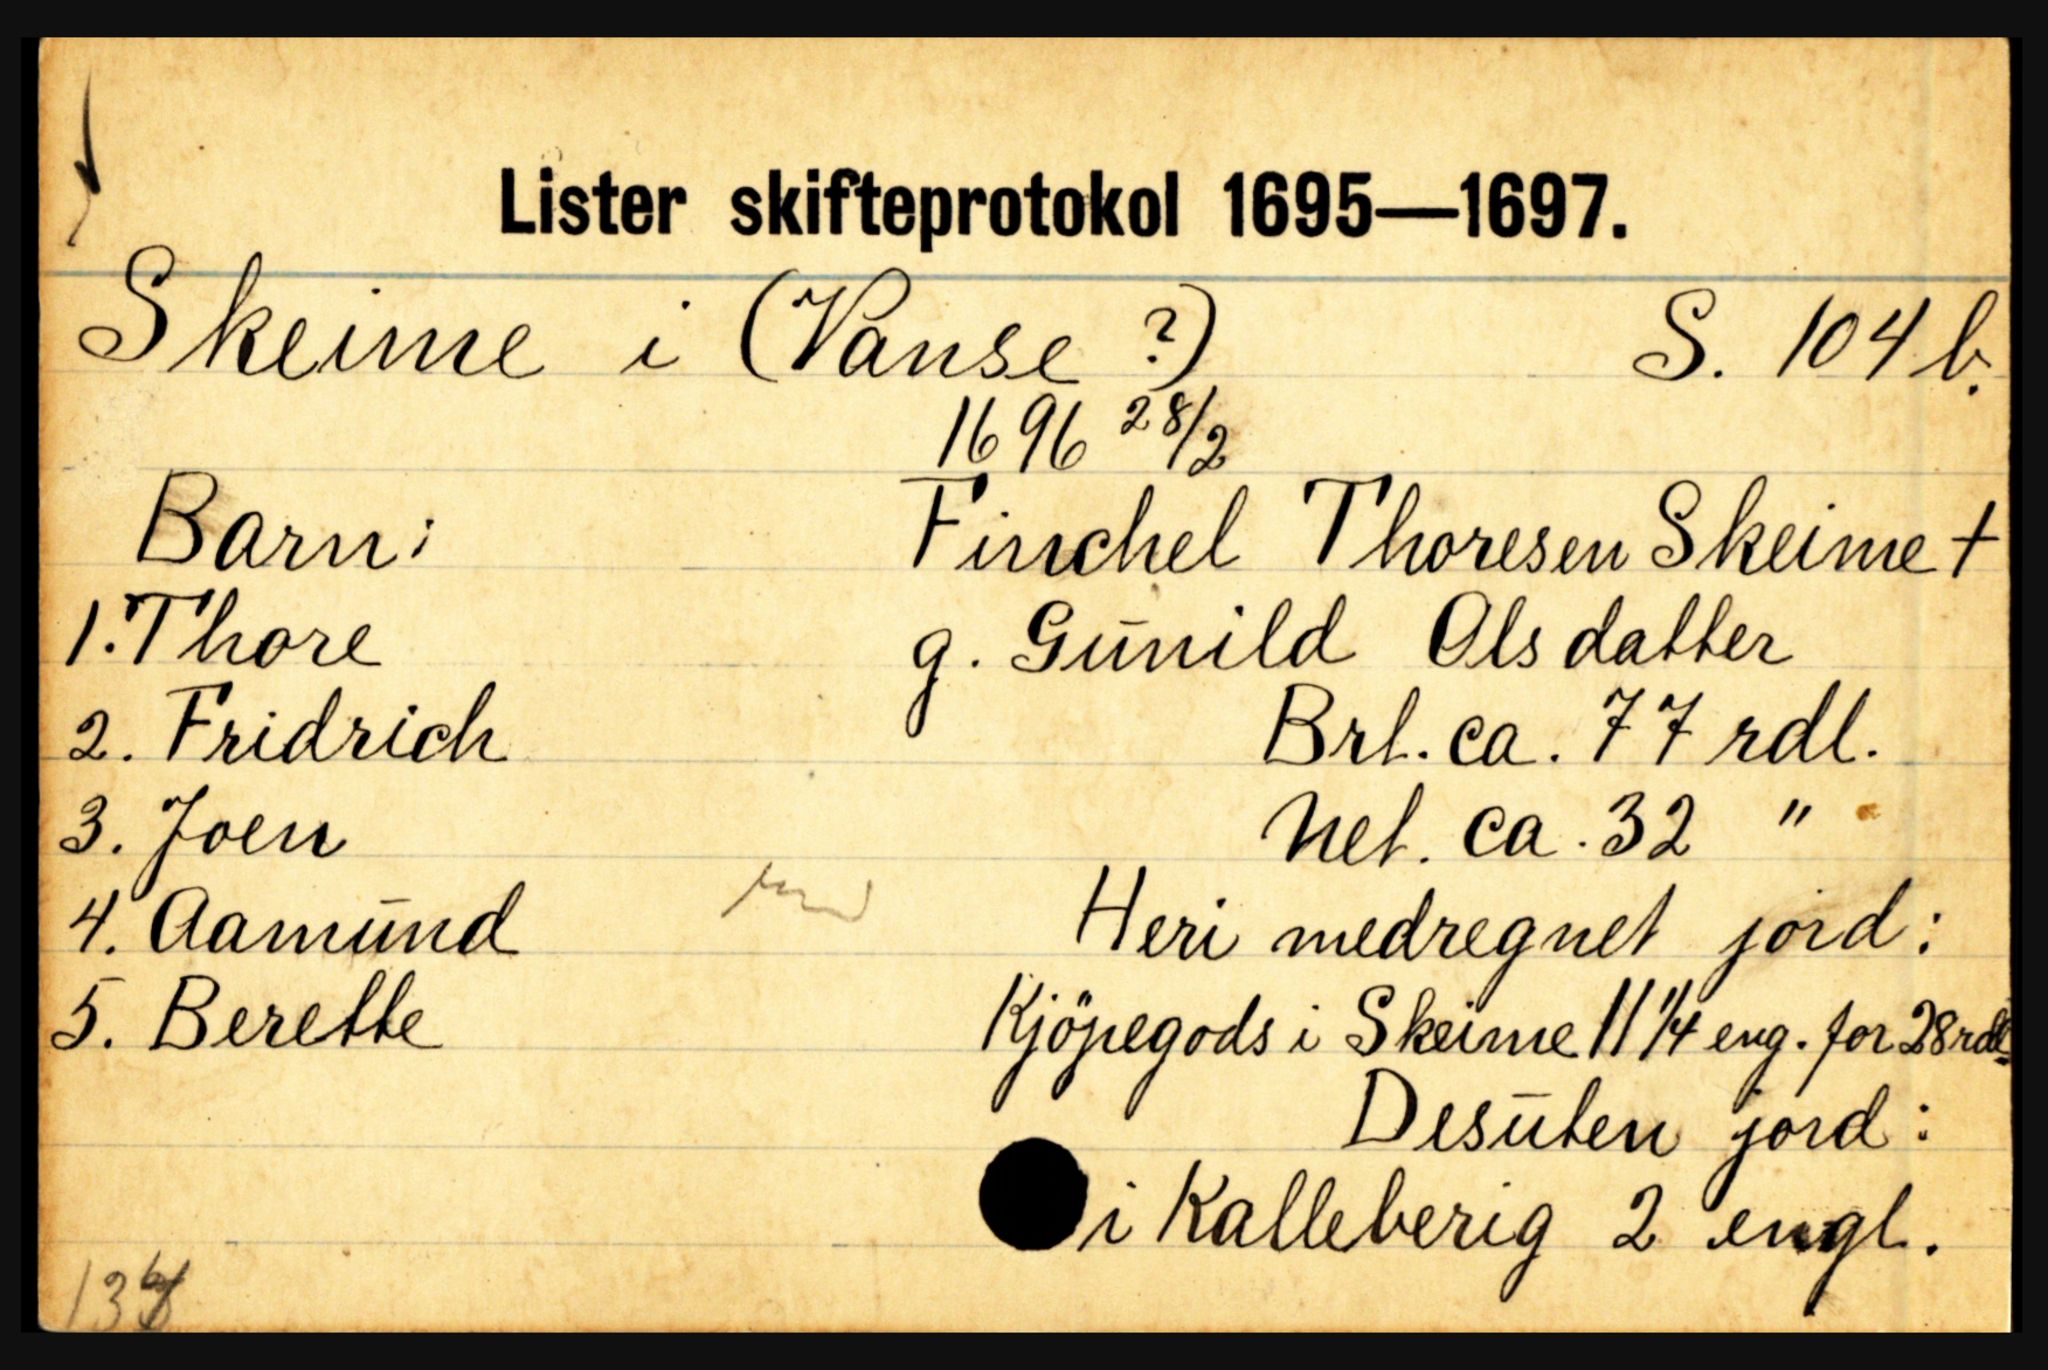 Lister skifteprotokol 1695—1697.
Skeime i (Vanse ?) S. 104 b.
1696 28/2
Barn:
1. Thore
2. Fridrich
3. Joen
4. Aamūnd
5. Berette
Finchel Thoresen Skeime †
g. Gūnild Olsdatter
Brt. ca. 77 rdl.
Net. ca. 32 "
Heri medregnet jord:
Kjöpegods i Skeime 11 1/4 eng. for 28 rdl
Desūten jord:
i Kalleberig 2 engl.